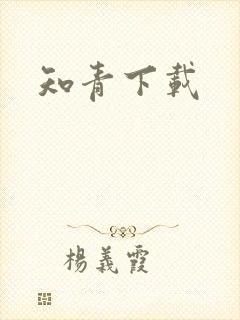 知青下載
楊義霞